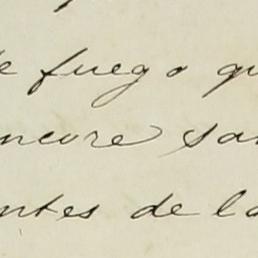 de fuego qu
ncore sa
ntes de la